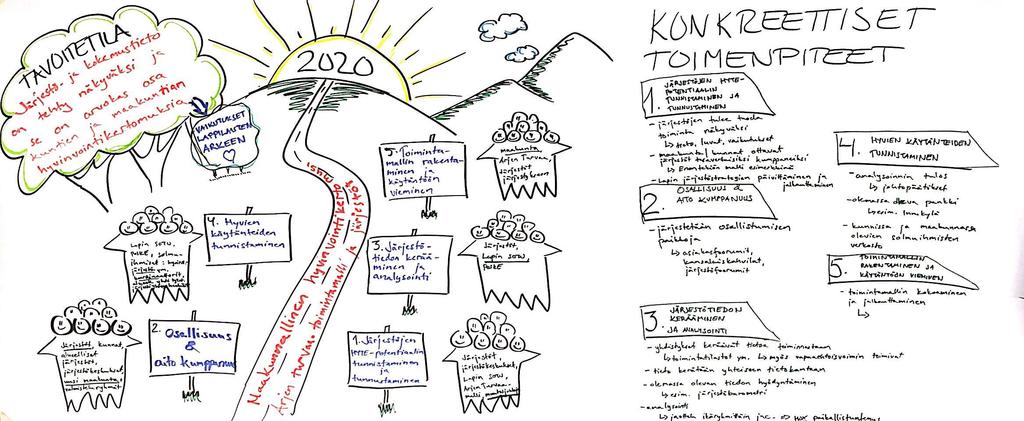 TAVOITETILA
Järjestö- ja kokemustieto
on tehty näkyväksi ja
se on arvokas osa
kuntien ja maakuntien
hyvinvointikertomuksia
VAIKUTUKSET
LAPPILAISTEN
ARKEEN
2020
5. Toiminta-
mallin rakenta-
minen ja
käytäntöön
vieminen
maakunta,
Arjen Turvan,
järjestöt
4. Hyvien
käytänteiden
tunnistaminen
Lapin SOTU,
POSKE, solmu-
ihmiset
3. Järjestö-
tiedon kerää-
minen ja
analysointi
Järjestöt,
Lapin SOTU,
POSKE
2. Osallisuus
&
aito kumppanuus
Järjestöt, kunnat,
alueelliset
järjestöt,
järjestökeskukset,
uusi maakunta,
1. Järjestöjen
HYTE-potentiaalin
tunnistaminen ja
tunnustaminen
Järjestöt,
järjestökeskukset,
Lapin SOTU,
Arjen Turva-
malli
Maakunnallinen hyvinvointikertomus
Arjen turva- toimintamalli ja järjestöt
KONKREETTISET
TOIMENPITEET
1. JÄRJESTÖJEN HYTE-
POTENTIAALIN
TUNNISTAMINEN JA
TUNNUSTAMINEN
- järjestöjen tulee tuoda
toiminta näkyväksi
↳ tieto, luvut, vaikutukset
- maakunta/kunnat ottavat
järjestöt tasavertaisiksi kumppaneiksi
↳ Enontekiön malli esimerkkinä
- Lapin järjestöstrategian päivittäminen ja
jalkauttaminen
2. OSALLISUUS &
AITO KUMPPANUUS
- järjestetään osallistumisen
paikkoja
↳ asiakasfoorumit,
kansalaiskahvilat,
järjestöfoorumit
3. JÄRJESTÖTIEDON
KERÄÄMINEN
JA ANALYSOINTI
- yhdistykset keräävät tietoa toiminnastaan
↳ toimintatilastot ym. ↳ myös vapaaehtoisvoimin toimivat
- tieto kerätään yhteiseen tietokantaan
- olemassa olevan tiedon hyödyntäminen
↳ esim. järjestöbarometri
- analysointi
↳ jaottelu ikäryhmittäin jne.
4. HYVIEN KÄYTÄNTEIDEN
TUNNISTAMINEN
- analysoinnin tulos
↳ johtopäätökset
- olemassa oleva pankki
↳ esim. Innokylä
- kunnissa ja maakunnassa
olevien solmuihmisten
verkosto
5. TOIMINTAMALLIN
RAKENTAMINEN JA
KÄYTÄNTÖÖN VIEMINEN
- toimintamallin kokoaminen
ja jalkauttaminen
↳